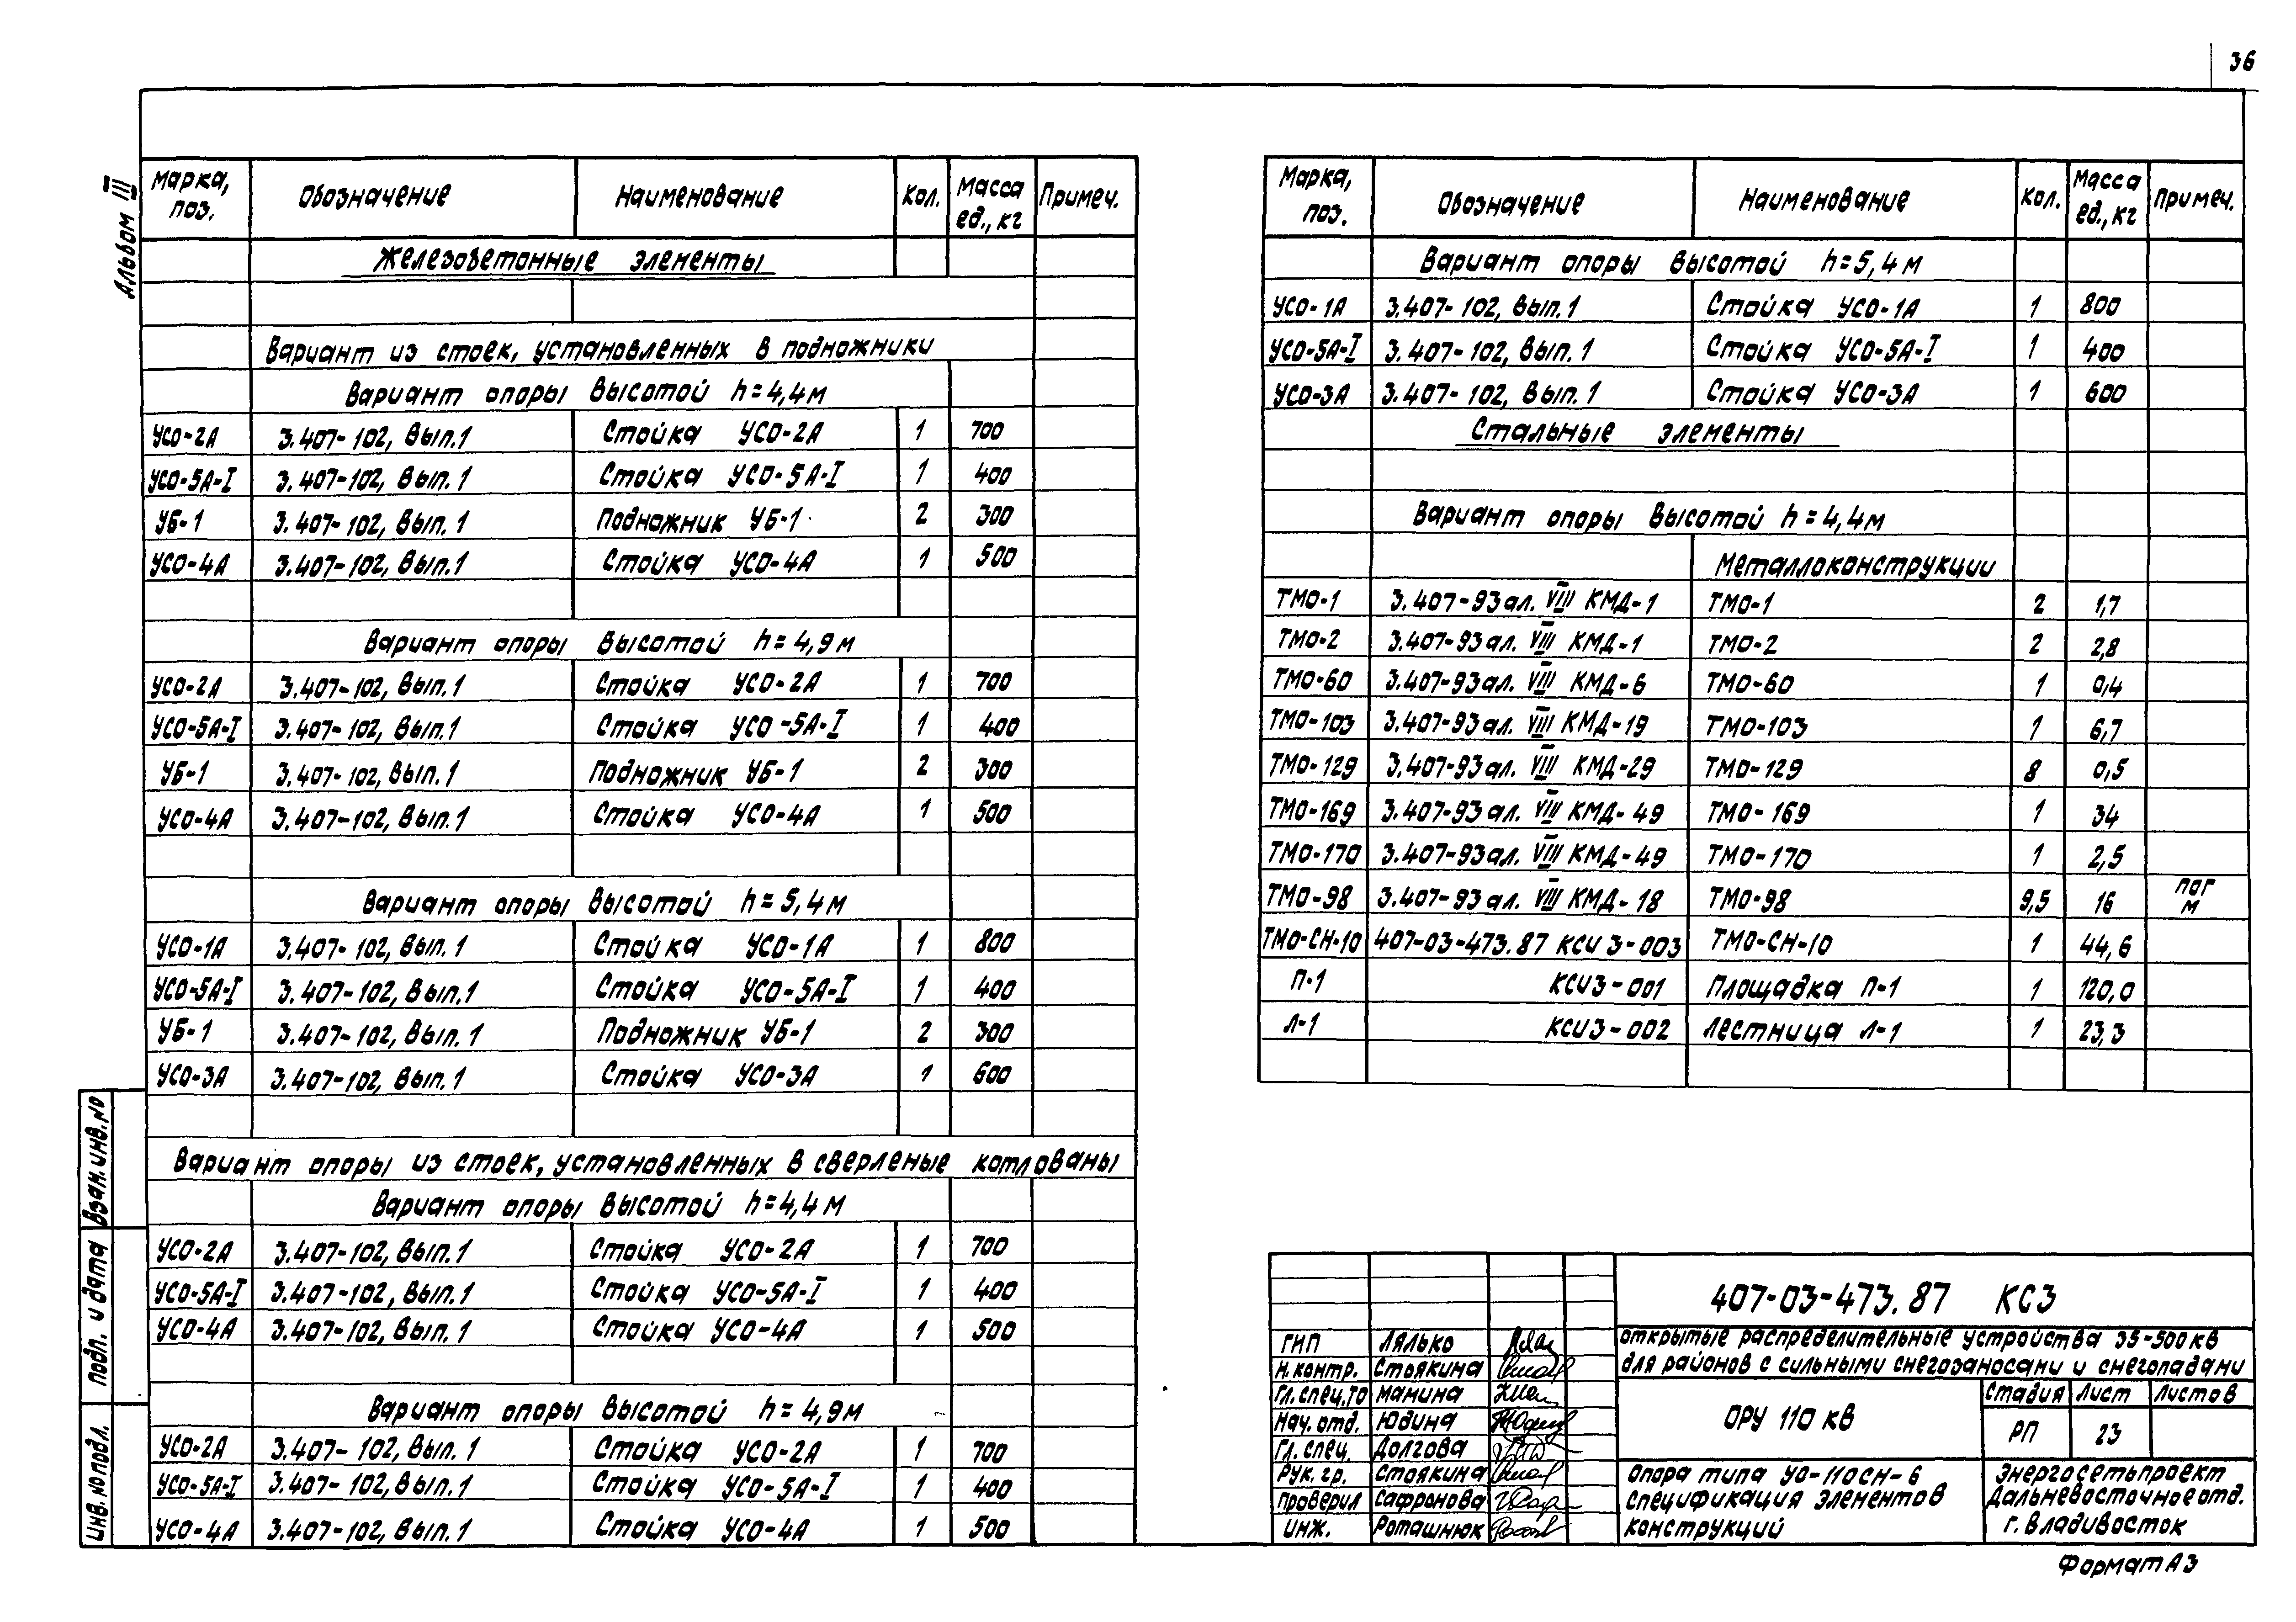 36
Альбом III
Марка, поз. Обозначение Наименование Кол. Масса ед., кг Примеч.
Железобетонные элементы
Вариант из стоек, установленных в подножники
Вариант опоры высотой h=4,4м
УСО-2А 3.407-102, Вып.1 Стойка УСО-2А 1 700
УСО-5А-I 3.407-102, Вып.1 Стойка УСО-5А-I 1 400
УБ-1 3.407-102, Вып.1 Подножник УБ-1 2 300
УСО-4А 3.407-102, Вып.1 Стойка УСО-4А 1 500
Вариант опоры высотой h=4,9м
УСО-2А 3.407-102, Вып.1 Стойка УСО-2А 1 700
УСО-5А-I 3.407-102, Вып.1 Стойка УСО-5А-I 1 400
УБ-1 3.407-102, Вып.1 Подножник УБ-1 2 300
УСО-4А 3.407-102, Вып.1 Стойка УСО-4А 1 500
Вариант опоры высотой h=5,4м
УСО-1А 3.407-102, Вып.1 Стойка УСО-1А 1 800
УСО-5А-I 3.407-102, Вып.1 Стойка УСО-5А-I 1 400
УБ-1 3.407-102, Вып.1 Подножник УБ-1 2 300
УСО-3А 3.407-102, Вып.1 Стойка УСО-3А 1 600
Вариант опоры из стоек, установленных в сверленые котлованы
Вариант опоры высотой h=4,4м
УСО-2А 3.407-102, Вып.1 Стойка УСО-2А 1 700
УСО-5А-I 3.407-102, Вып.1 Стойка УСО-5А-I 1 400
УСО-4А 3.407-102, Вып.1 Стойка УСО-4А 1 500
Вариант опоры высотой h=4,9м
УСО-2А 3.407-102, Вып.1 Стойка УСО-2А 1 700
УСО-5А-I 3.407-102, Вып.1 Стойка УСО-5А-I 1 400
УСО-4А 3.407-102, Вып.1 Стойка УСО-4А 1 500
Взам.инв.№
Подп. и дата
Инв.№подл.
Марка, поз. Обозначение Наименование Кол. Масса ед., кг Примеч.
Вариант опоры высотой h=5,4м
УСО-1А 3.407-102, Вып.1 Стойка УСО-1А 1 800
УСО-5А-I 3.407-102, Вып.1 Стойка УСО-5А-I 1 400
УСО-3А 3.407-102, Вып.1 Стойка УСО-3А 1 600
Стальные элементы
Вариант опоры высотой h=4,4м
Металлоконструкции
ТМО-1 3.407-93ал. VIII КМД-1 ТМО-1 2 1,7
ТМО-2 3.407-93ал. VIII КМД-1 ТМО-2 2 2,8
ТМО-60 3.407-93ал. VIII КМД-6 ТМО-60 1 0,4
ТМО-103 3.407-93ал. VIII КМД-19 ТМО-103 1 6,7
ТМО-129 3.407-93ал. VIII КМД-29 ТМО-129 8 0,5
ТМО-169 3.407-93ал. VIII КМД-49 ТМО-169 1 34
ТМО-170 3.407-93ал. VIII КМД-49 ТМО-170 1 2,5
ТМО-98 3.407-93ал. VIII КМД-18 ТМО-98 9,5 16 пог м
ТМО-СН-10 407-03-473.87 КСИ3-003 ТМО-СН-10 1 44,6
П-1 КСИ3-001 Площадка П-1 1 120,0
Л-1 КСИ3-002 Лестница Л-1 1 23,3
407-03-473.87 КС3
Открытые распределительные устройства 35-500кВ
для районов с сильными снегозаносами и снегопадами
ГИП Лялько
Н.контр. Стоякина
Гл.спец.ТО Мамина
Нач.отд. Юдина
Гл.спец. Долгова
Рук.гр. Стоякина
Проверил Сафронова
Инж. Роташнюк
ОРУ 110 кВ
Стадия Лист Листов
РП 23
Опора типа УО-110СН-6
Спецификация элементов
конструкций
Энергосетьпроект
Дальневосточное отд.
г. Владивосток
Формат А3